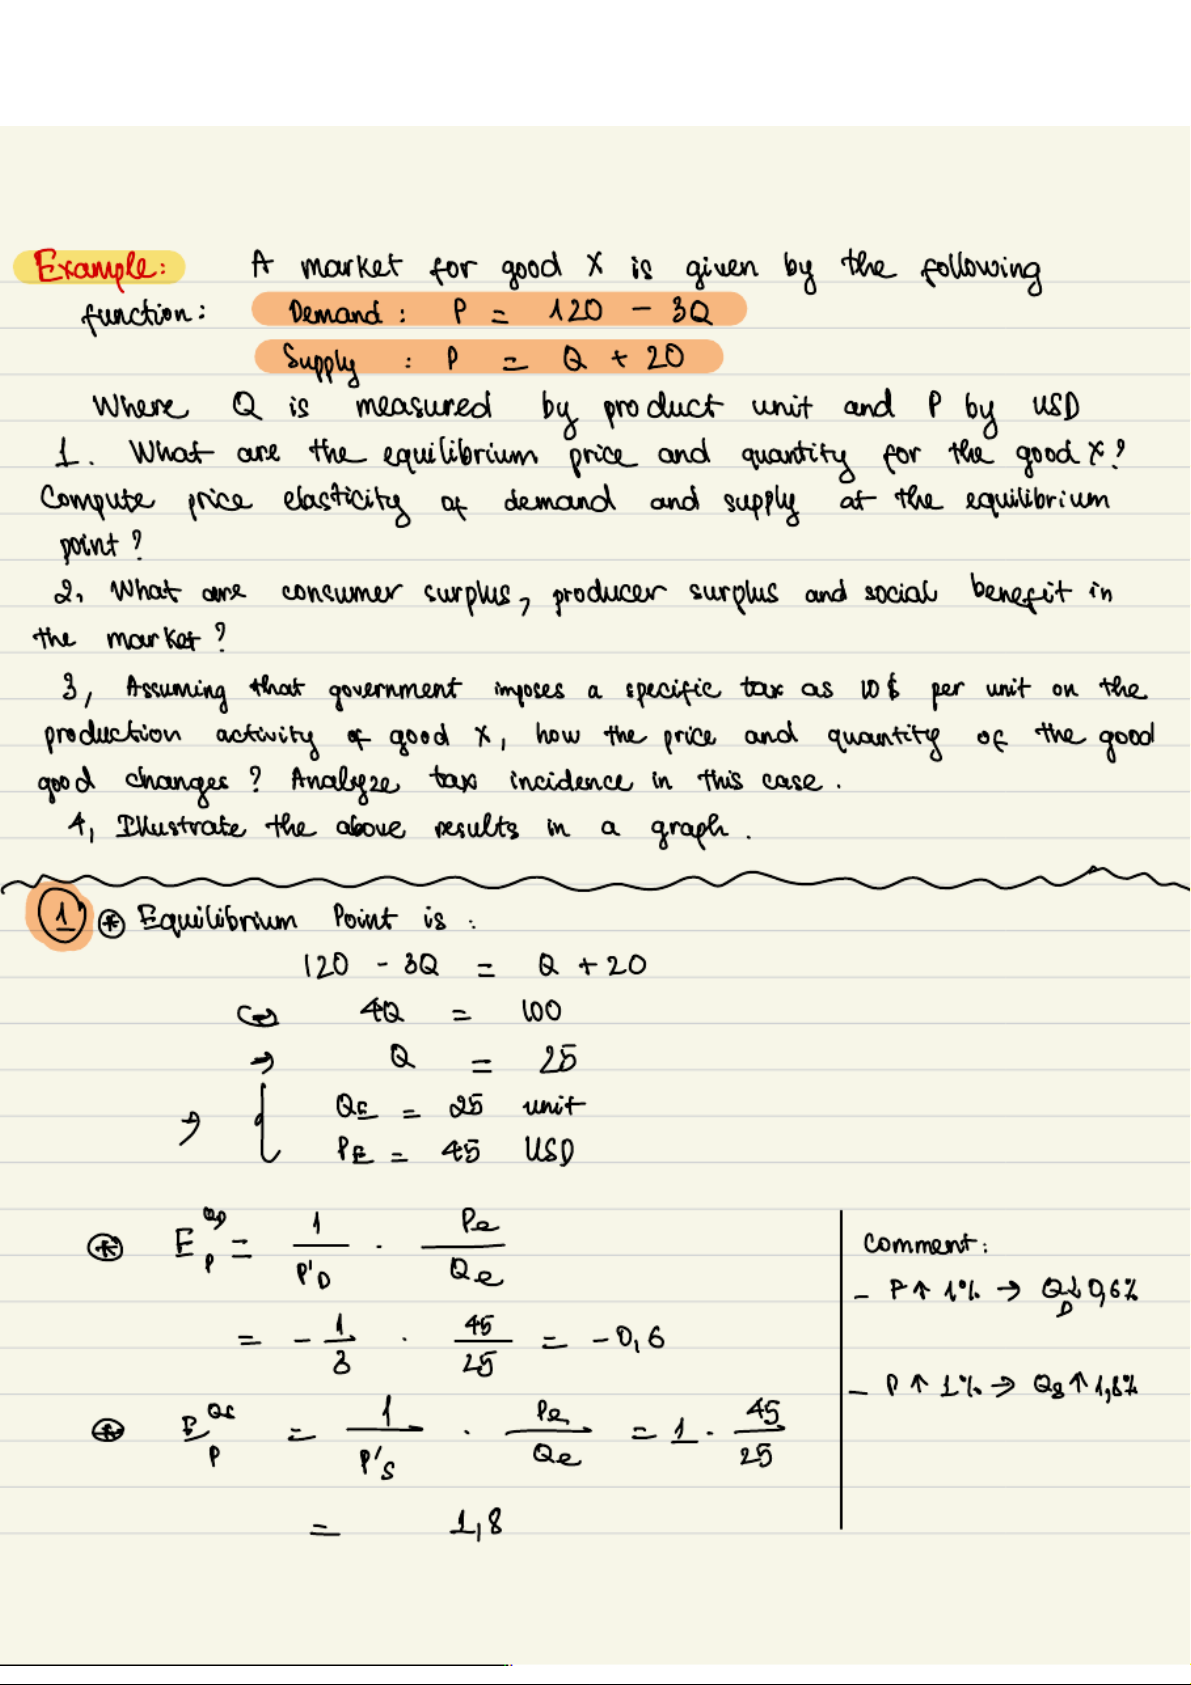 Example: A market for good X is given by the following
function: Demand : P = 120 - 3Q
Supply : P = Q + 20
Where Q is measured by product unit and P by USD
1. What are the equilibrium price and quantity for the good X?
Compute price elasticity of demand and supply at the equilibrium
point?
2, What are consumer surplus, producer surplus and social benefit in
the market?
3, Assuming that government imposes a specific tax as 10$ per unit on the
production activity of good X, how the price and quantity of the good
good changes? Analyze tax incidence in this case.
4, Illustrate the above results in a graph.
1 * Equilibrium Point is :
120 - 3Q = Q + 20
⇔ 4Q = 100
→ Q = 25
→ { QE = 25 unit
PE = 45 USD
* E_P^QD = 1/P'D . Pe/Qe
= - 1/3 . 45/25 = -0,6
* E_P^QS = 1/P'S . Pe/Qe = 1 . 45/25
= 1,8
Comment:
- P ↑ 1% → QD ↓ 0,6%
- P ↑ 1% → QS ↑ 1,8%